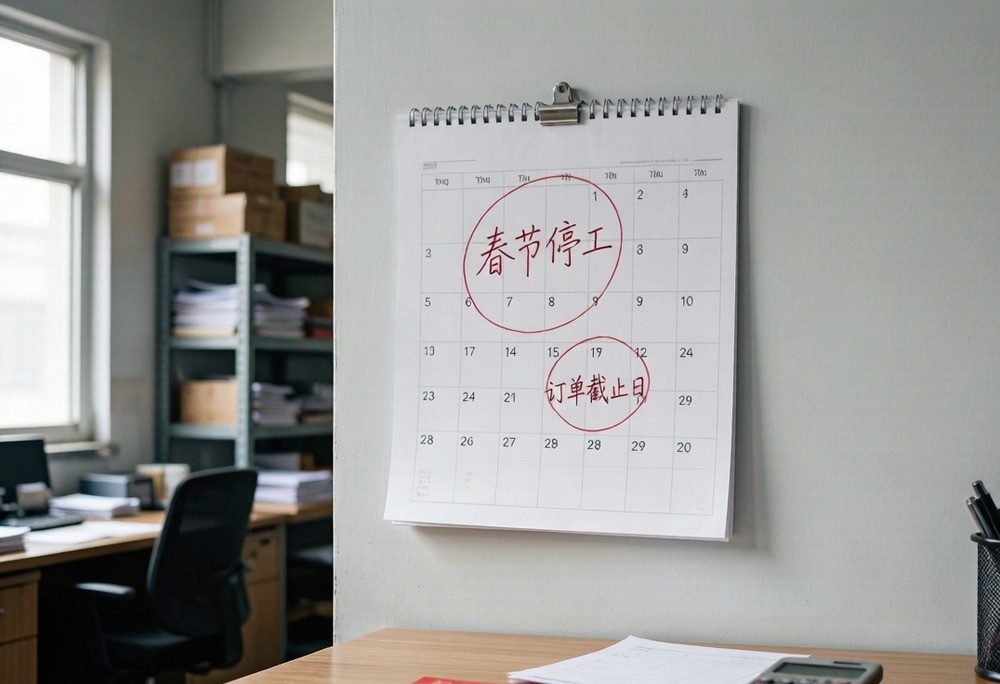 1 2 4
春节停工
3 8 9
5 6 7 8 9 9 10
13 17 14 15 19 12 24
订单截止日
23 24 21 29
28 26 27 28 28 29 20